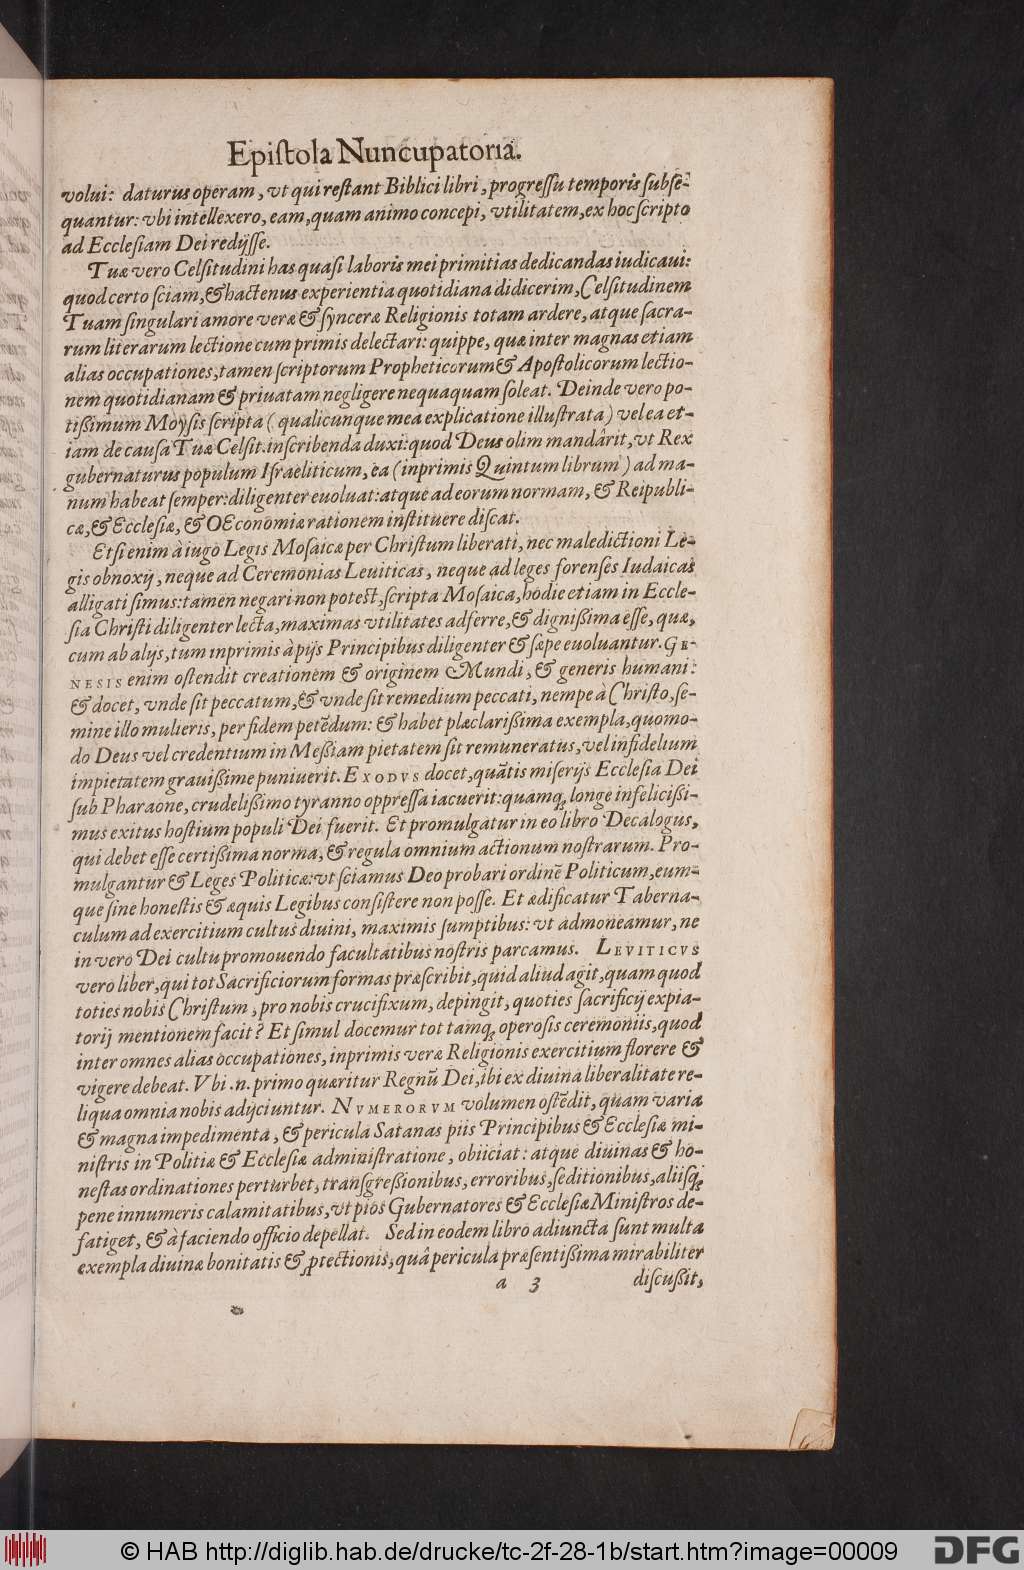 Epiſtola Nuncupatoria.
volui: daturus operam, vt qui reſtant Biblici libri, progreſſu temporis ſubſe-
quantur: vbi intellexero, eam, quam animo concepi, vtilitatem, ex hoc ſcripto
ad Eccleſiam Dei redijſſe.
Tuæ vero Celſitudini has quaſi laboris mei primitias dedicandas iudicaui:
quod certo ſciam, & hactenus experientia quotidiana didicerim, Celſitudinem
Tuam ſingulari amore veræ & ſynceræ Religionis totam ardere, atque ſacra-
rum literarum lectione cum primis delectari: quippe, quæ inter magnas etiam
alias occupationes, tamen ſcriptorum Propheticorum & Apoſtolicorum lectio-
nem quotidianam & priuatam negligere nequaquam ſoleat. Deinde vero po-
tißimum Moyſis ſcripta (qualicunque mea explicatione illuſtrata) vel ea et-
iam de cauſa Tuæ Celſit. inſcribenda duxi: quod Deus olim mandârit, vt Rex
gubernaturus populum Iſraeliticum, ea (inprimis Quintum librum) ad ma-
num habeat ſemper: diligenter euoluat: atque ad eorum normam, & Reipubli-
cæ, & Eccleſiæ, & OEconomiæ rationem inſtituere diſcat.
Etſi enim à iugo Legis Moſaicæ per Chriſtum liberati, nec maledictioni Le-
gis obnoxij, neque ad Ceremonias Leuiticas, neque ad leges forenſes Iudaicas
alligati ſimus: tamen negari non poteſt, ſcripta Moſaica, hodie etiam in Eccle-
ſia Chriſti diligenter lecta, maximas vtilitates adferre, & dignißima eſſe, quæ,
cum ab alijs, tum inprimis à pijs Principibus diligenter & ſæpe euoluantur. GE-
NESIS enim oſtendit creationem & originem Mundi, & generis humani:
& docet, vnde ſit peccatum, & vnde ſit remedium peccati, nempe à Chriſto, ſe-
mine illo mulieris, per fidem petēdum: & habet plæclarißima exempla, quomo-
do Deus vel credentium in Meßiam pietatem ſit remuneratus, vel infidelium
impietatem grauißime puniuerit. EXODVS docet, quātis miſerijs Eccleſia Dei
ſub Pharaone, crudelißimo tyranno oppreſſa iacuerit: quamq́; longe infelicißi-
mus exitus hoſtium populi Dei fuerit. Et promulgatur in eo libro Decalogus,
qui debet eſſe certißima norma, & regula omnium actionum noſtrarum. Pro-
mulgantur & Leges Politicæ: vt ſciamus Deo probari ordinē Politicum, eum-
que ſine honeſtis & æquis Legibus conſiſtere non poſſe. Et ædificatur Taberna-
culum ad exercitium cultus diuini, maximis ſumptibus: vt admoneamur, ne
in vero Dei cultu promouendo facultatibus noſtris parcamus. LEVITICVS
vero liber, qui tot Sacrificiorum formas præſcribit, quid aliud agit, quam quod
toties nobis Chriſtum, pro nobis crucifixum, depingit, quoties ſacrificij expia-
torij mentionem facit? Et ſimul docemur tot tamq́; operoſis ceremoniis, quod
inter omnes alias occupationes, inprimis veræ Religionis exercitium florere &
vigere debeat. Vbi .n. primo quæritur Regnū Dei, ibi ex diuina liberalitate re-
liqua omnia nobis adijciuntur. NVMERORVM volumen oſtēdit, quam varia
& magna impedimenta, & pericula Satanas piis Principibus & Eccleſiæ mi-
niſtris in Politiæ & Eccleſiæ adminiſtratione, obiiciat: atque diuinas & ho-
neſtas ordinationes perturbet, tranſgreßionibus, erroribus, ſeditionibus, aliiſq́;
pene innumeris calamitatibus, vt pios Gubernatores & Eccleſiæ Miniſtros de-
fatiget, & à faciendo officio depellat. Sed in eodem libro adiuncta ſunt multa
exempla diuinæ bonitatis & ꝓtectionis, quâ pericula præſentißima mirabiliter
a 3 diſcußit,
© HAB http://diglib.hab.de/drucke/tc-2f-28-1b/start.htm?image=00009
DFG